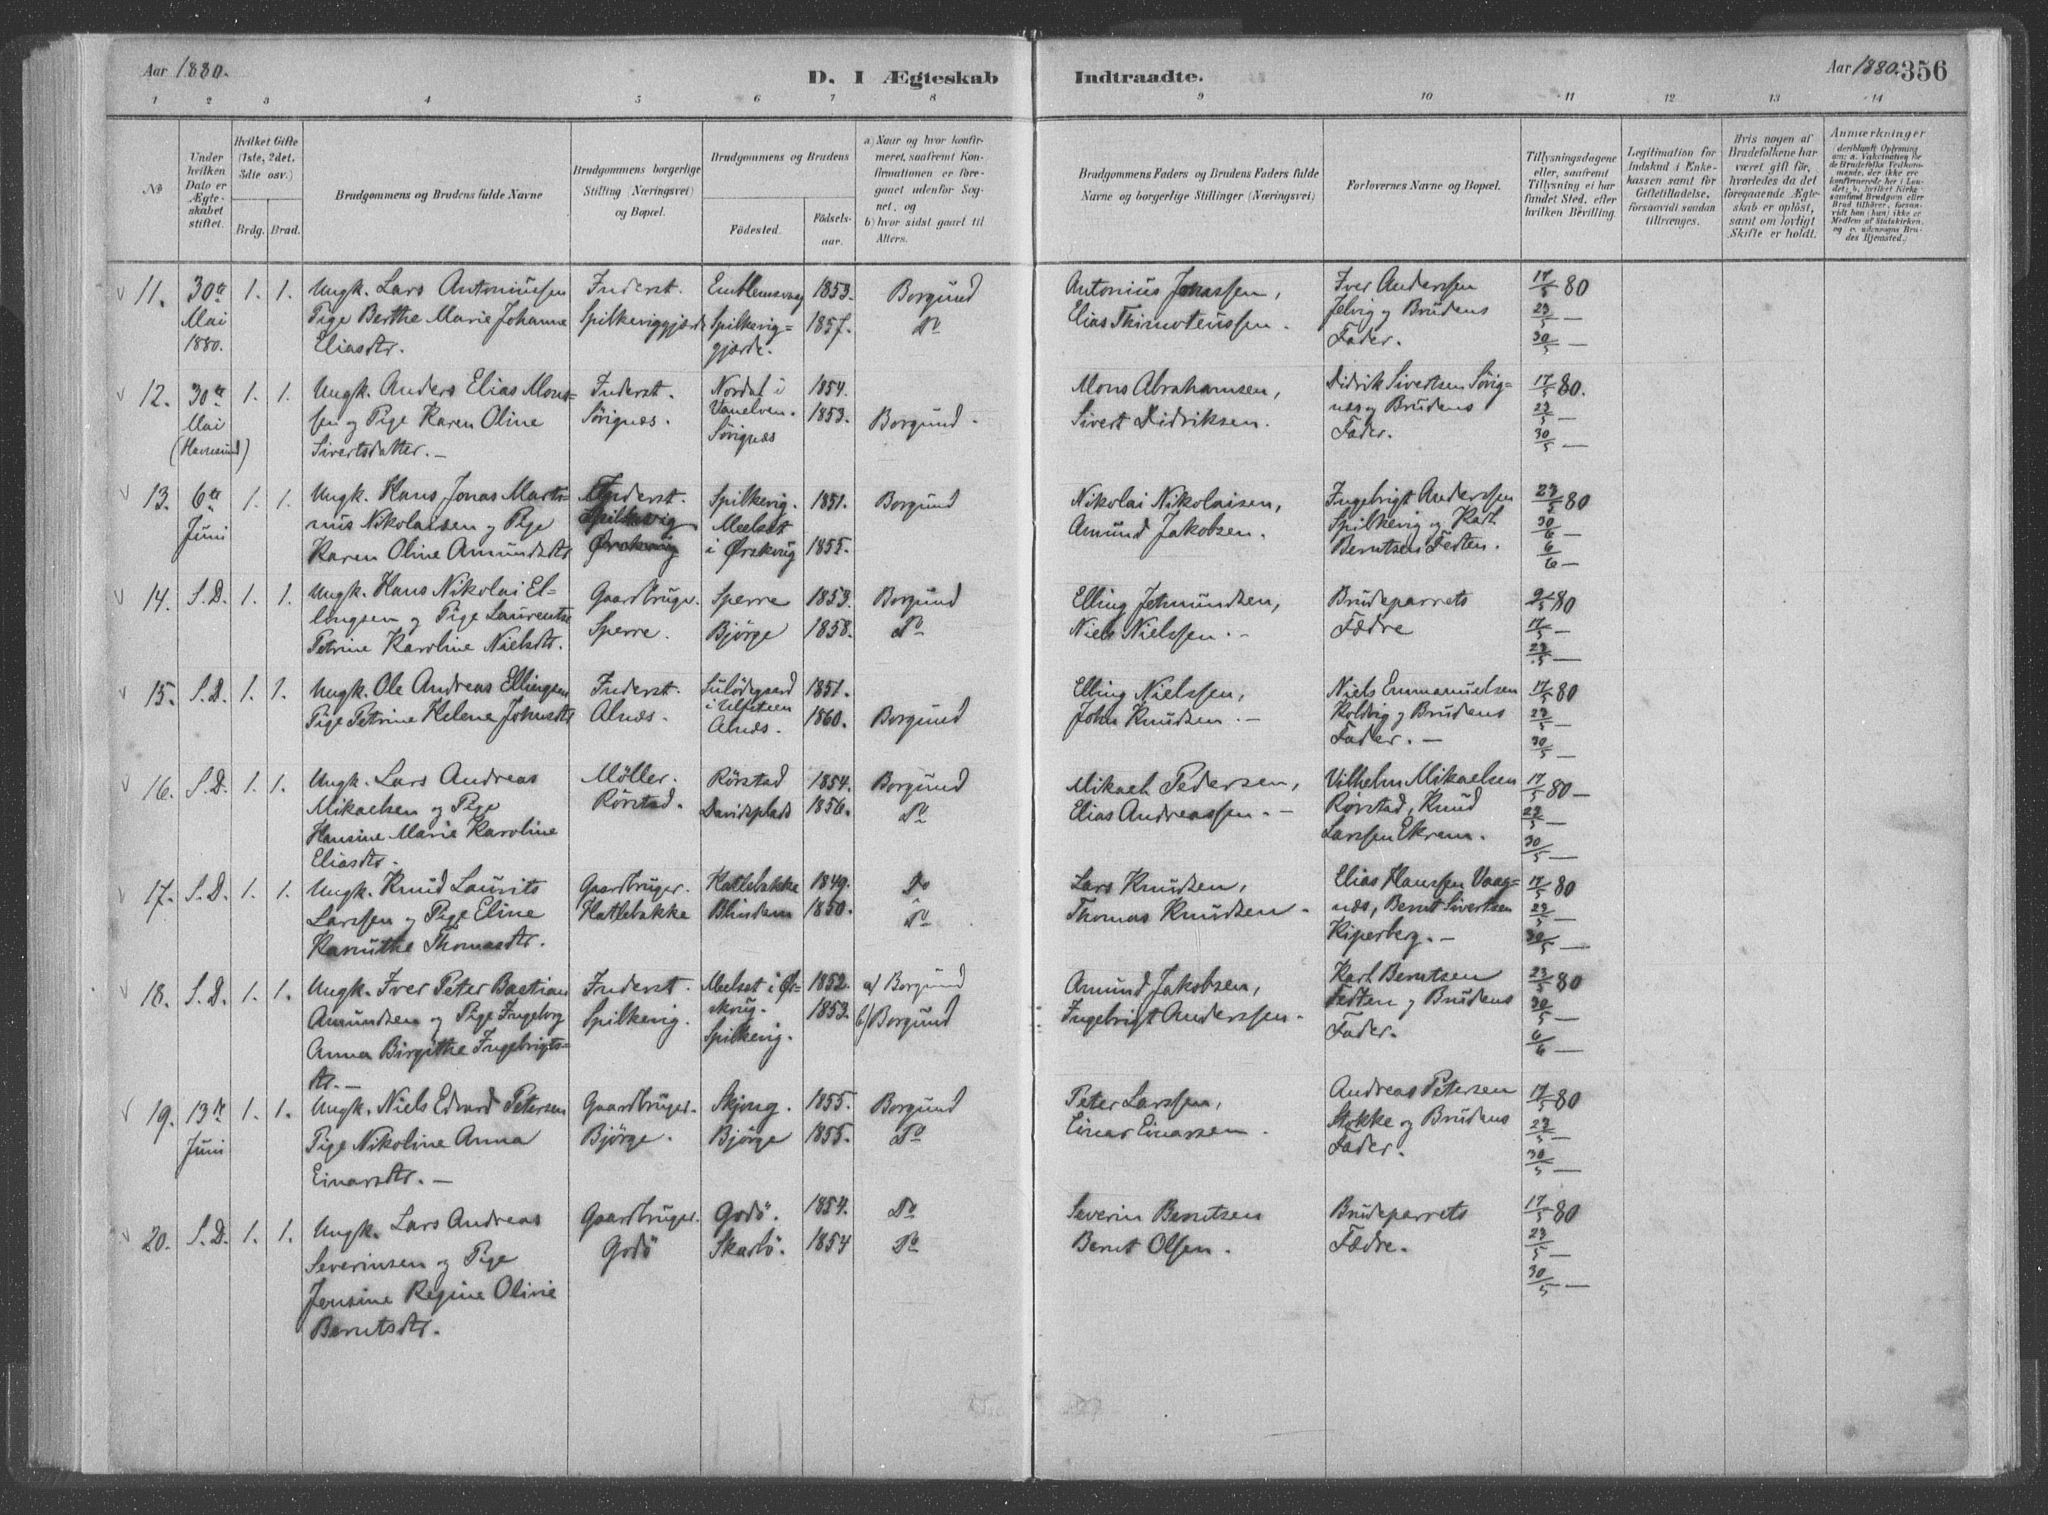 Aar 1880.
D. I Ægteskab
Indtraadte.
Aar 1880. 356
1 2 3 4 5 6 7 8 9 10 11 12 13 14
No
Under hvilken Dato er Ægteskabet stiftet.
Hvilket Gifte (1ste, 2det, 3die osv.)
Brdg. Brud.
Brudgommens og Brudens fulde Navne
Brudgommens borgerlige Stilling (Næringsvei) og Bopæl.
Brudgommens og Brudens
Födested. Födsels-aar.
a) Naar og hvor konfirmeret, saafremt Konfirmationen er foregaaet udenfor Sognet, og
b) hvor sidst gaaet til Alters.
Brudgommens Faders og Brudens Faders fulde Navne og borgerlige Stillinger (Næringsvei)
Forlovernes Navne og Bopæl.
Tillysningsdagene eller, saafremt Tillysning ei har fundet Sted, efter hvilken Bevilling.
Legitimation for Indskud i Enkekassen samt for Giftetilladelse, forsaavidt saadan tiltrænges.
Hvis nogen af Brudefolkene har været gift för, hvorledes da det foregaaende Ægteskab er oplöst, samt om lovligt Skifte er holdt.
Anmærkninger
11. 30te Mai 1880. 1. 1.
Ungk. Lars Antoniussen
Pige Berthe Marie Johanne
Eliasdtr.
Inderst. Spilkeviggjærde
Emblemsvaag 1853. Borgund
Spilkeviggjærde. 1857. Do
Antonius Jonassen,
Elias Thimoteussen.
Iver Anderssen
Jelvig og Brudens
Fader.
17/5 80
23/5 —
30/5 —
12. 30te Mai (Havnsund) 1. 1.
Ungk. Anders Elias Mons-
sen og Pige Karen Oline
Sivertsdatter. —
Inderst. Sørignæs.
Nordal i Vanelven. 1854.
Sørignæs 1853. Borgund.
Mons Abrahamsen,
Sivert Didriksen.
Didrik Sivertsen Sørig-
næs og Brudens
Fader.
17/5 80.
23/5 —
30/5 —
13. 6te Juni 1. 1.
Ungk. Hans Jonas Marti-
nus Nikolaisen og Pige
Karen Oline Amundsdtr
Inderst. Spilkevig
Ørskoug
Spilkevig. 1851. Borgund
Meelset i Ørskoug 1855.
Nikolai Nikolaisen,
Amund Jakobsen.
Ingebrigt Anderssen
Spilkevig og Karl
Berntsen Fedten.
23/5 80
30/6 —
6/6 —
14. S.D. 1. 1.
Ungk. Hans Nikolai El-
lingsen og Pige Laurentse
Petrine Karoline Nielsdtr.
Gaardbruger. Sperre.
Sperre 1853. Borgund
Bjørge 1858. Do
Elling Jetmundsen,
Niels Nielssen. —
Brudeparrets
Fædre
9/5 80
17/5 —
23/5 —
15. S.D. 1. 1.
Ungk. Ole Andreas Ellingsen
Pige Petrine Helene Johnsdtr
Inderst. Alnæs.
Sulødegaard i Ulfsteen 1851.
Alnæs. 1860. Borgund
Elling Nielssen,
John Knudsen. —
Niels Emmanuelsen
Koldvig og Brudens
Fader. —
17/5 80
23/5 —
30/5 —
16. S.D. 1. 1.
Ungk. Lars Andreas
Mikaelsen og Pige
Hansine Marie Karoline
Eliasdtr.
Møller. Rørstad.
Rørstad 1854. Borgund
Davidsplads 1856. Do
Mikael Pedersen,
Elias Andreassen. —
Vilhelm Mikaelsen
Rørstad, Knud
Larssen Ekrem.
17/5 80 —
23/5 —
30/5 —
17. S.D. 1. 1.
Ungk. Knud Laurits
Larssen og Pige Eline
Kanuthe Thomasdtr.
Gaardbruger. Hatlebakke
Hatlebakke 1849. Do
Blindem 1850. Do
Lars Knudsen,
Thomas Knudsen.
Elias Hanssen Vaag-
næs, Bernt Sivertsen
Kiperberg. —
17/5 80
23/5 —
30/5 —
18. S.D. 1. 1.
Ungk. Iver Peter Bastian
Amundsen og Pige Ingeborg
Anna Birgithe Ingebrigts-
dtr. —
Inderst. Spilkevig.
Meelset i Ørskoug. 1852. a) Borgund
Spilkevig. 1853. b) Borgund
Amund Jakobsen,
Ingebrigt Anderssen.
Karl Berntsen
Fedten og Brudens
Fader.
23/5 80
30/5 —
6/6 —
19. 13de Juni 1. 1.
Ungk. Niels Edvard Petersen
Pige Nikoline Anna
Einarsdtr. —
Gaardbruger. Bjørge.
Skjong. 1855. Borgund
Bjørge 1855. Do
Peter Larssen,
Einar Einarsen.
Andreas Petersen
Stokke og Brudens
Fader.
17/5 80
23/5 —
30/5 —
20. S.D. 1. 1.
Ungk. Lars Andreas
Severinsen og Pige
Jensine Regine Olivie
Berntsdtr.
Gaardbruger. Godø
Godø. 1854. Do
Skarbø. 1854 Do
Severin Berntsen
Bernt Olsen.
Brudeparrets
Fædre.
17/5 80
23/5 —
30/5 —